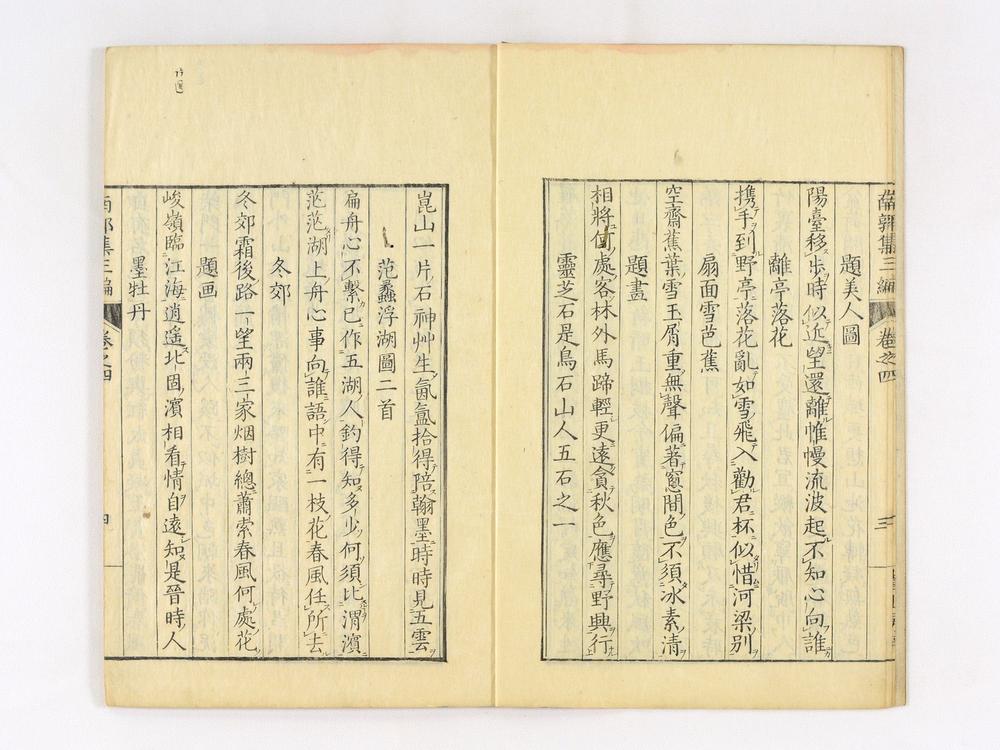 南郭集三編 卷之四 三
題美人圖
陽臺移步時似近望還離帷幔流波起不知心向誰
離亭落花
携手到野亭落花亂如雪飛入勸君杯似惜河梁別
扇面雪芭蕉
空齋蕉葉雪玉屑重無聲偏著窓間色不須冰素清
題畫
相將何處客林外馬蹄輕更遠貪秋色應尋野興行
靈芝石是鳥石山人五石之一
崑山一片石神艸生氤氳拾得陪翰墨時時見五雲
范蠡浮湖圖二首
扁舟心不繫已作五湖人釣得知多少何須比渭濱
茫茫湖上舟心事向誰語中有一枝花春風任所去
冬郊
冬郊霜後路一望兩三家烟樹總蕭索春風何處花
題画
峻嶺臨江海逍遥北固濱相看情自遠知是晉時人
墨牡丹
南郭集三編 卷之四 四